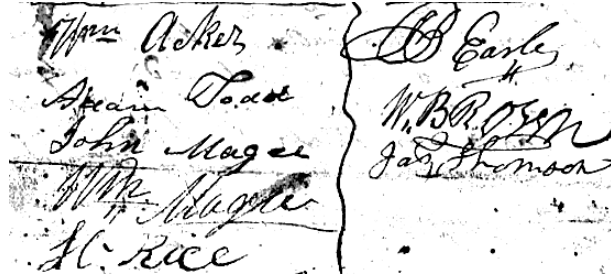 Wm Acker
Todd
John Magee
Wm Magee
Rice
Earle
W. B.
Jas Thomson